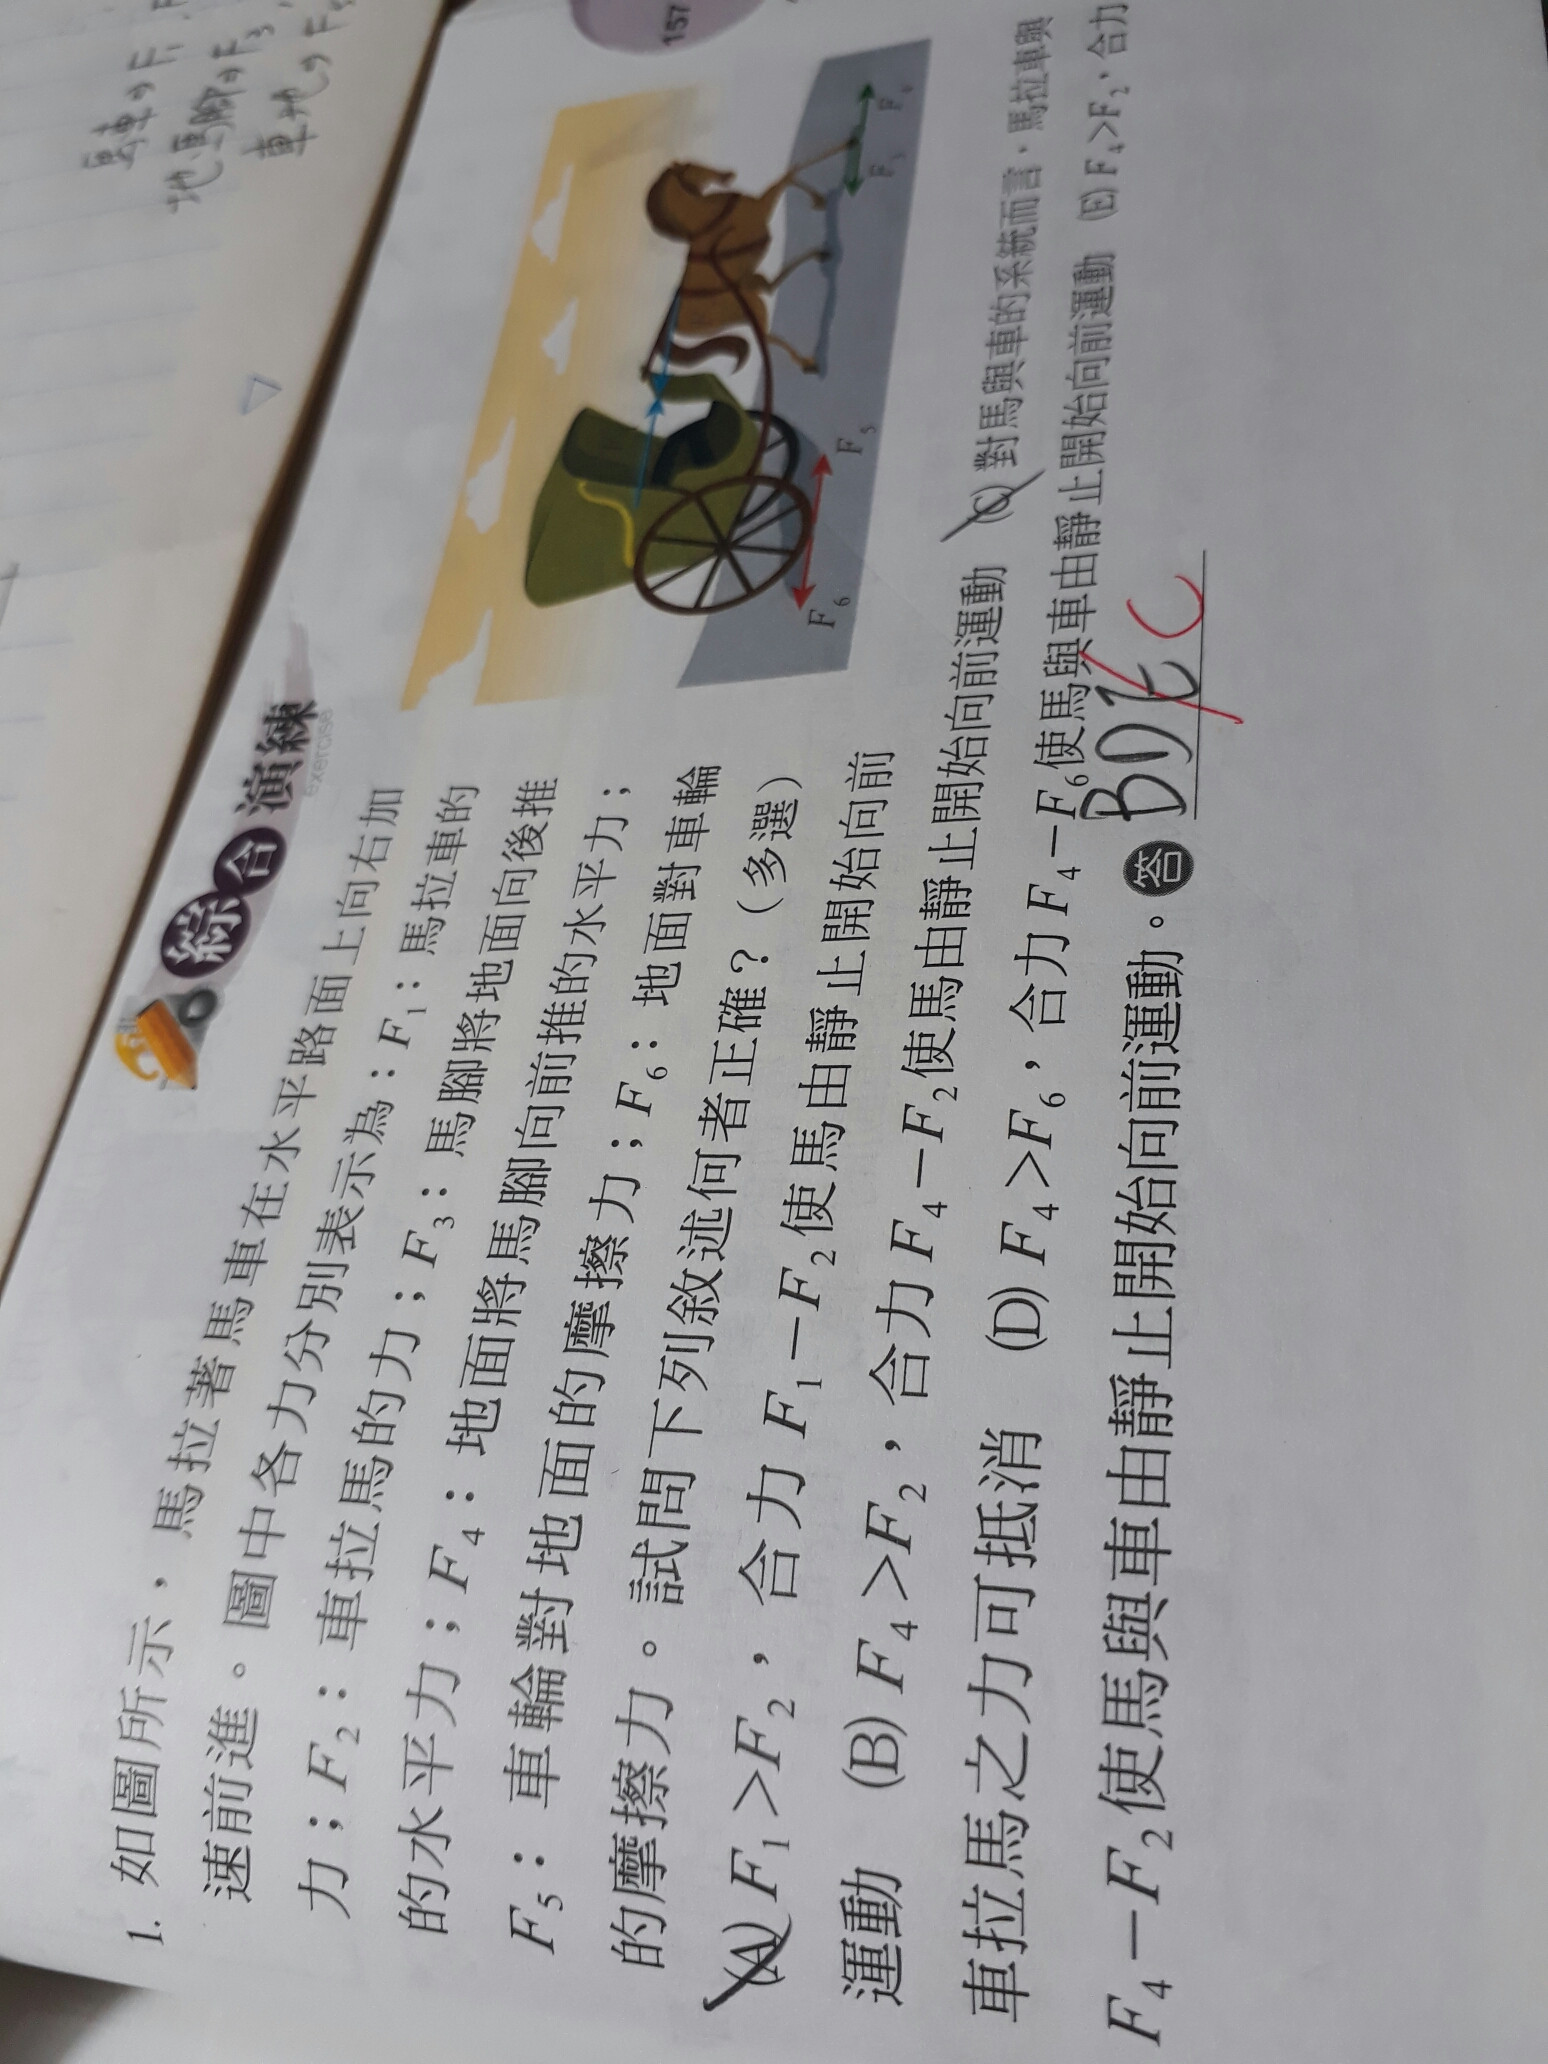 馬車⇒F1, F
地馬腳⇒F3,
車地⇒F5
157
綜合演練
exercise
1. 如圖所示，馬拉著馬車在水平路面上向右加
速前進。圖中各力分別表示為：F1：馬拉車的
力；F2：車拉馬的力；F3：馬腳將地面向後推
的水平力；F4：地面將馬腳向前推的水平力；
F5：車輪對地面的摩擦力；F6：地面對車輪
的摩擦力。試問下列敘述何者正確？（多選）
(A) F1＞F2，合力F1－F2使馬由靜止開始向前
運動 (B) F4＞F2，合力F4－F2使馬由靜止開始向前運動 (C) 對馬與車的系統而言，馬拉車與
車拉馬之力可抵消 (D) F4＞F6，合力F4－F6使馬與車由靜止開始向前運動 (E) F4＞F2，合力
F4－F2使馬與車由靜止開始向前運動。答 BDE C
F6
F5
F3
F4